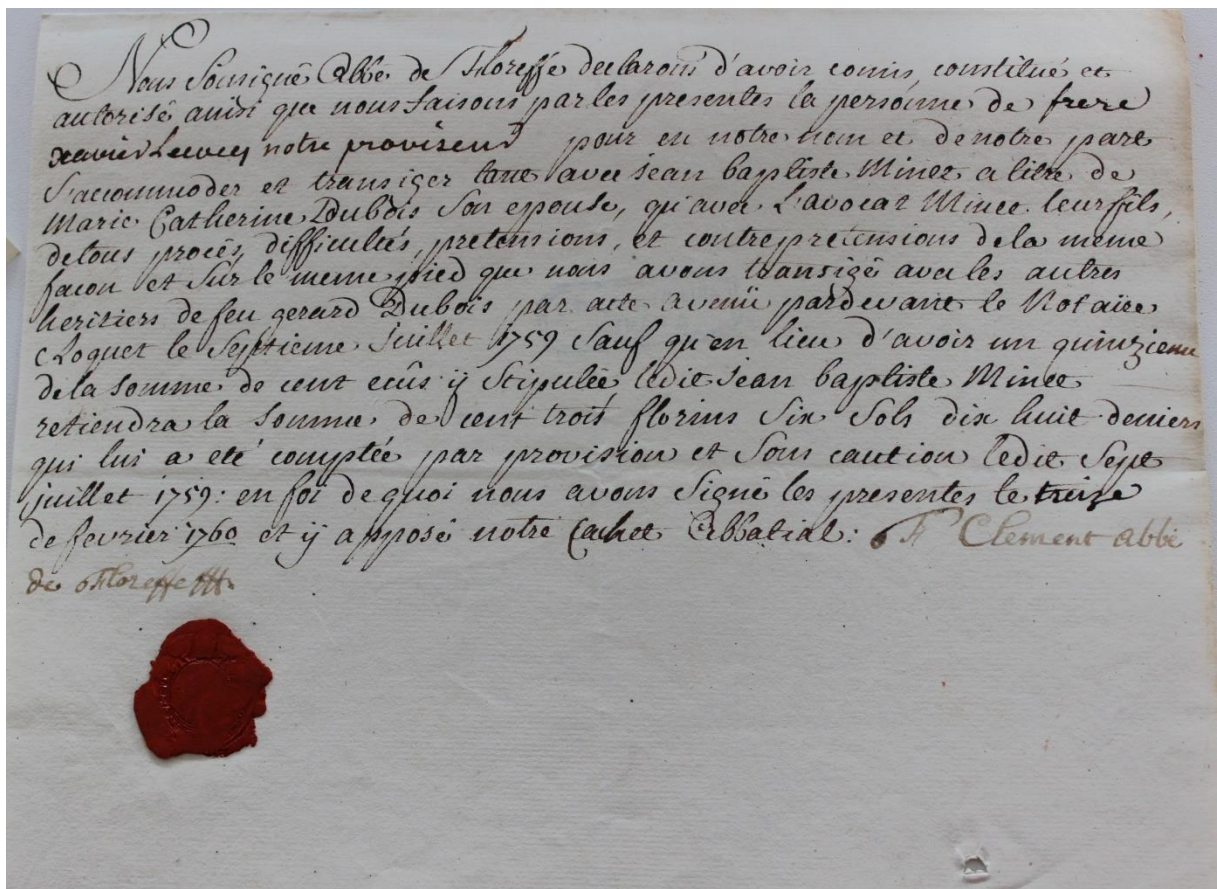 Nous Soussigné Abbé de Floreffe declarons d'avoir comis, constitué et
autorisé ainsi que nous faisons par les presentes la persónne de frere
xavier notre proviseur pour en notre nom et de notre part
s'accommoder et transiger tant avec jean baptiste Minet a titre de
Marie Catherine Dubois Son epouse, qu'avec L'avocat Minet leur fils,
de tous procès, difficultés, pretensions, et contrepretensions de la meme
facon et Sur le meme pied que nous avons transigé avec les autres
heritiers de feu gerard Dubois par acte avenü pardevant le Notaire
Cloquet le Septieme Juillet 1759 Sauf qu'en lieu d'avoir un quinzieme
de la Somme de cent ecûs ÿ Stipulée ledit jean baptiste Minet
retiendra la Somme de cent trois florins Six Sols dix huit deniers
qui lui a eté comptée par provision et Sous caution ledit Sept
juillet 1759: en foi de quoi nous avons Signé les presentes le treise
de fevrier 1760 et ÿ apposé notre Cachet Abbatial: F Clement abbé
de Floreffe